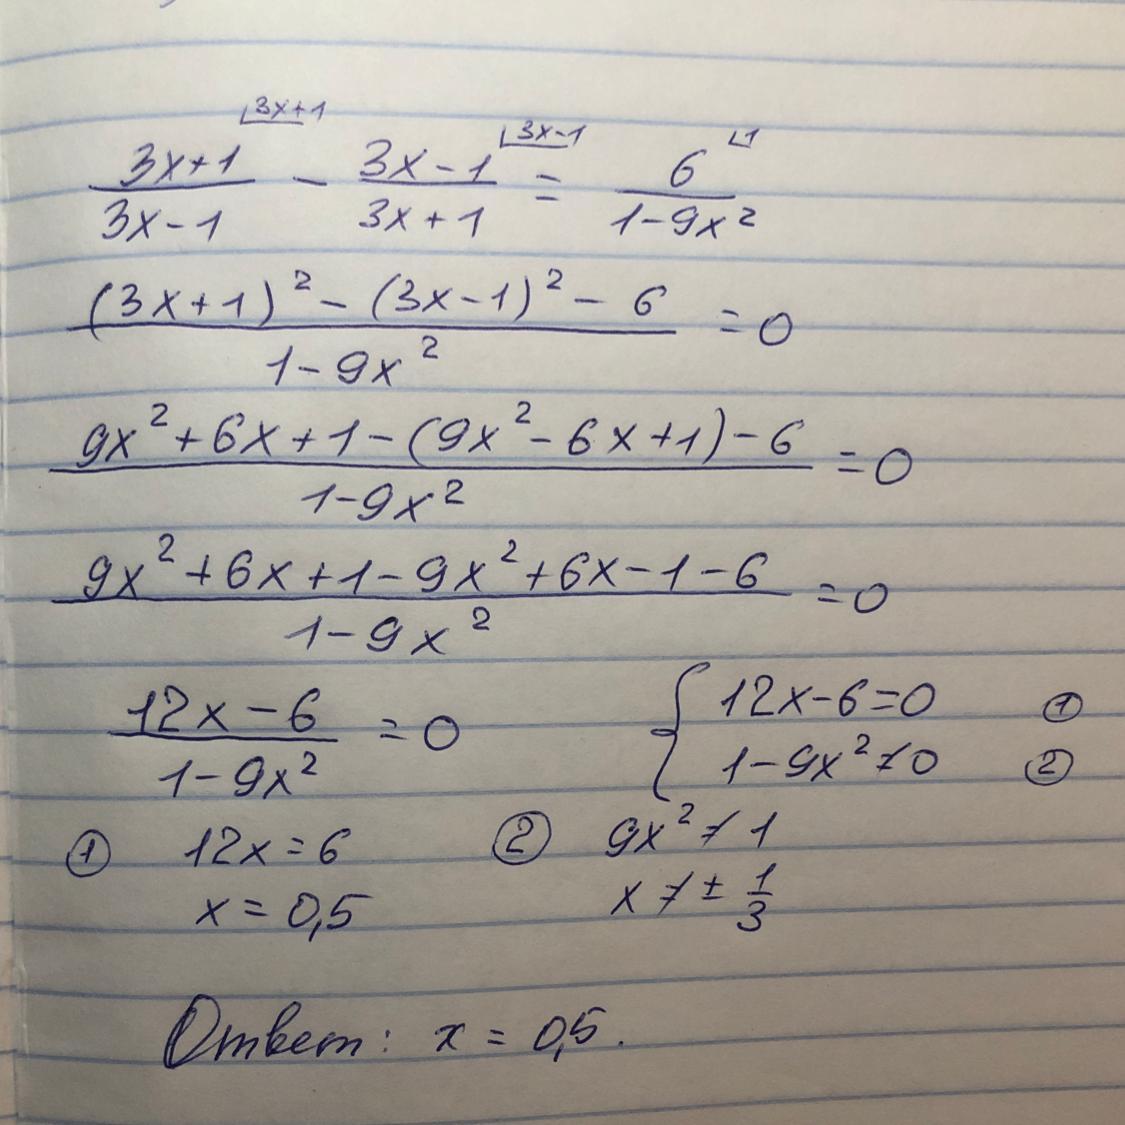 (3x+1)/(3x-1) ⌊3x+1 - (3x-1)/(3x+1) ⌊3x-1 = 6/(1-9x²) ⌊1
((3x+1)² - (3x-1)² - 6)/(1-9x²) = 0
(9x²+6x+1-(9x²-6x+1)-6)/(1-9x²) = 0
(9x²+6x+1-9x²+6x-1-6)/(1-9x²) = 0
(12x-6)/(1-9x²) = 0 { 12x-6=0 ①
1-9x²≠0 ②
① 12x=6 ② 9x²≠1
x=0,5 x≠±1/3
Ответ: x=0,5.